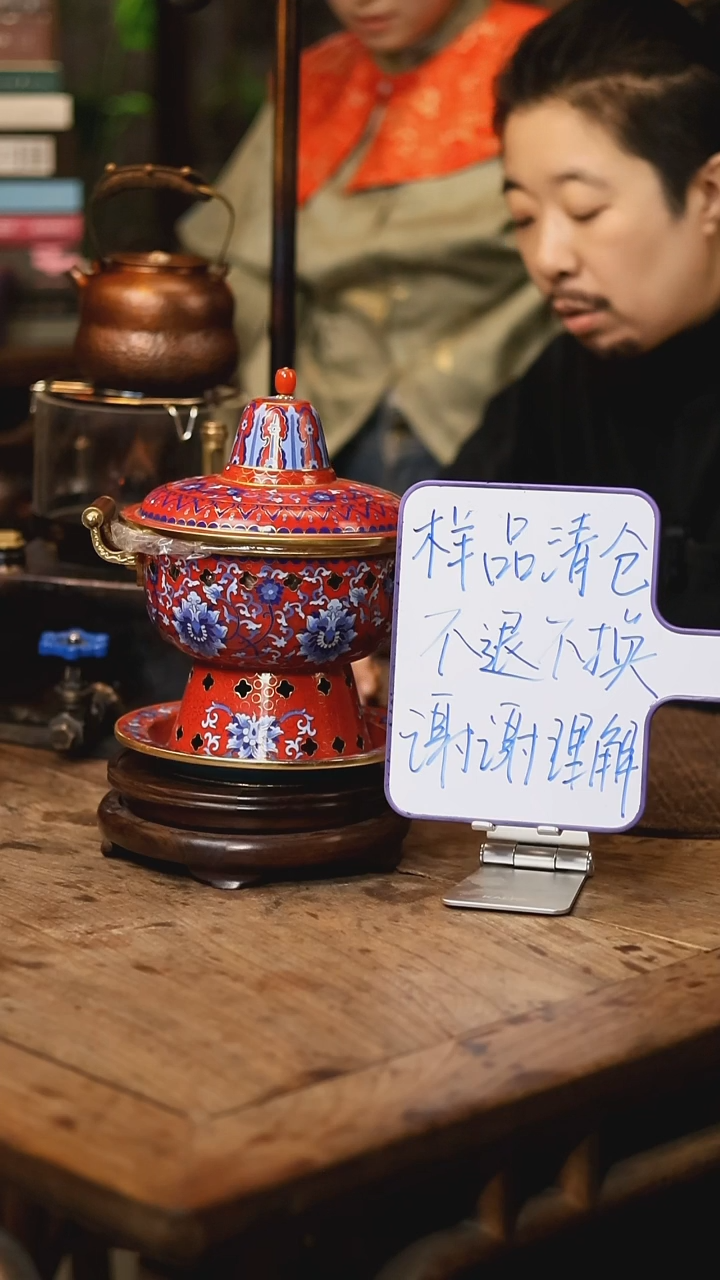 样品清仓
不退不换
谢谢理解